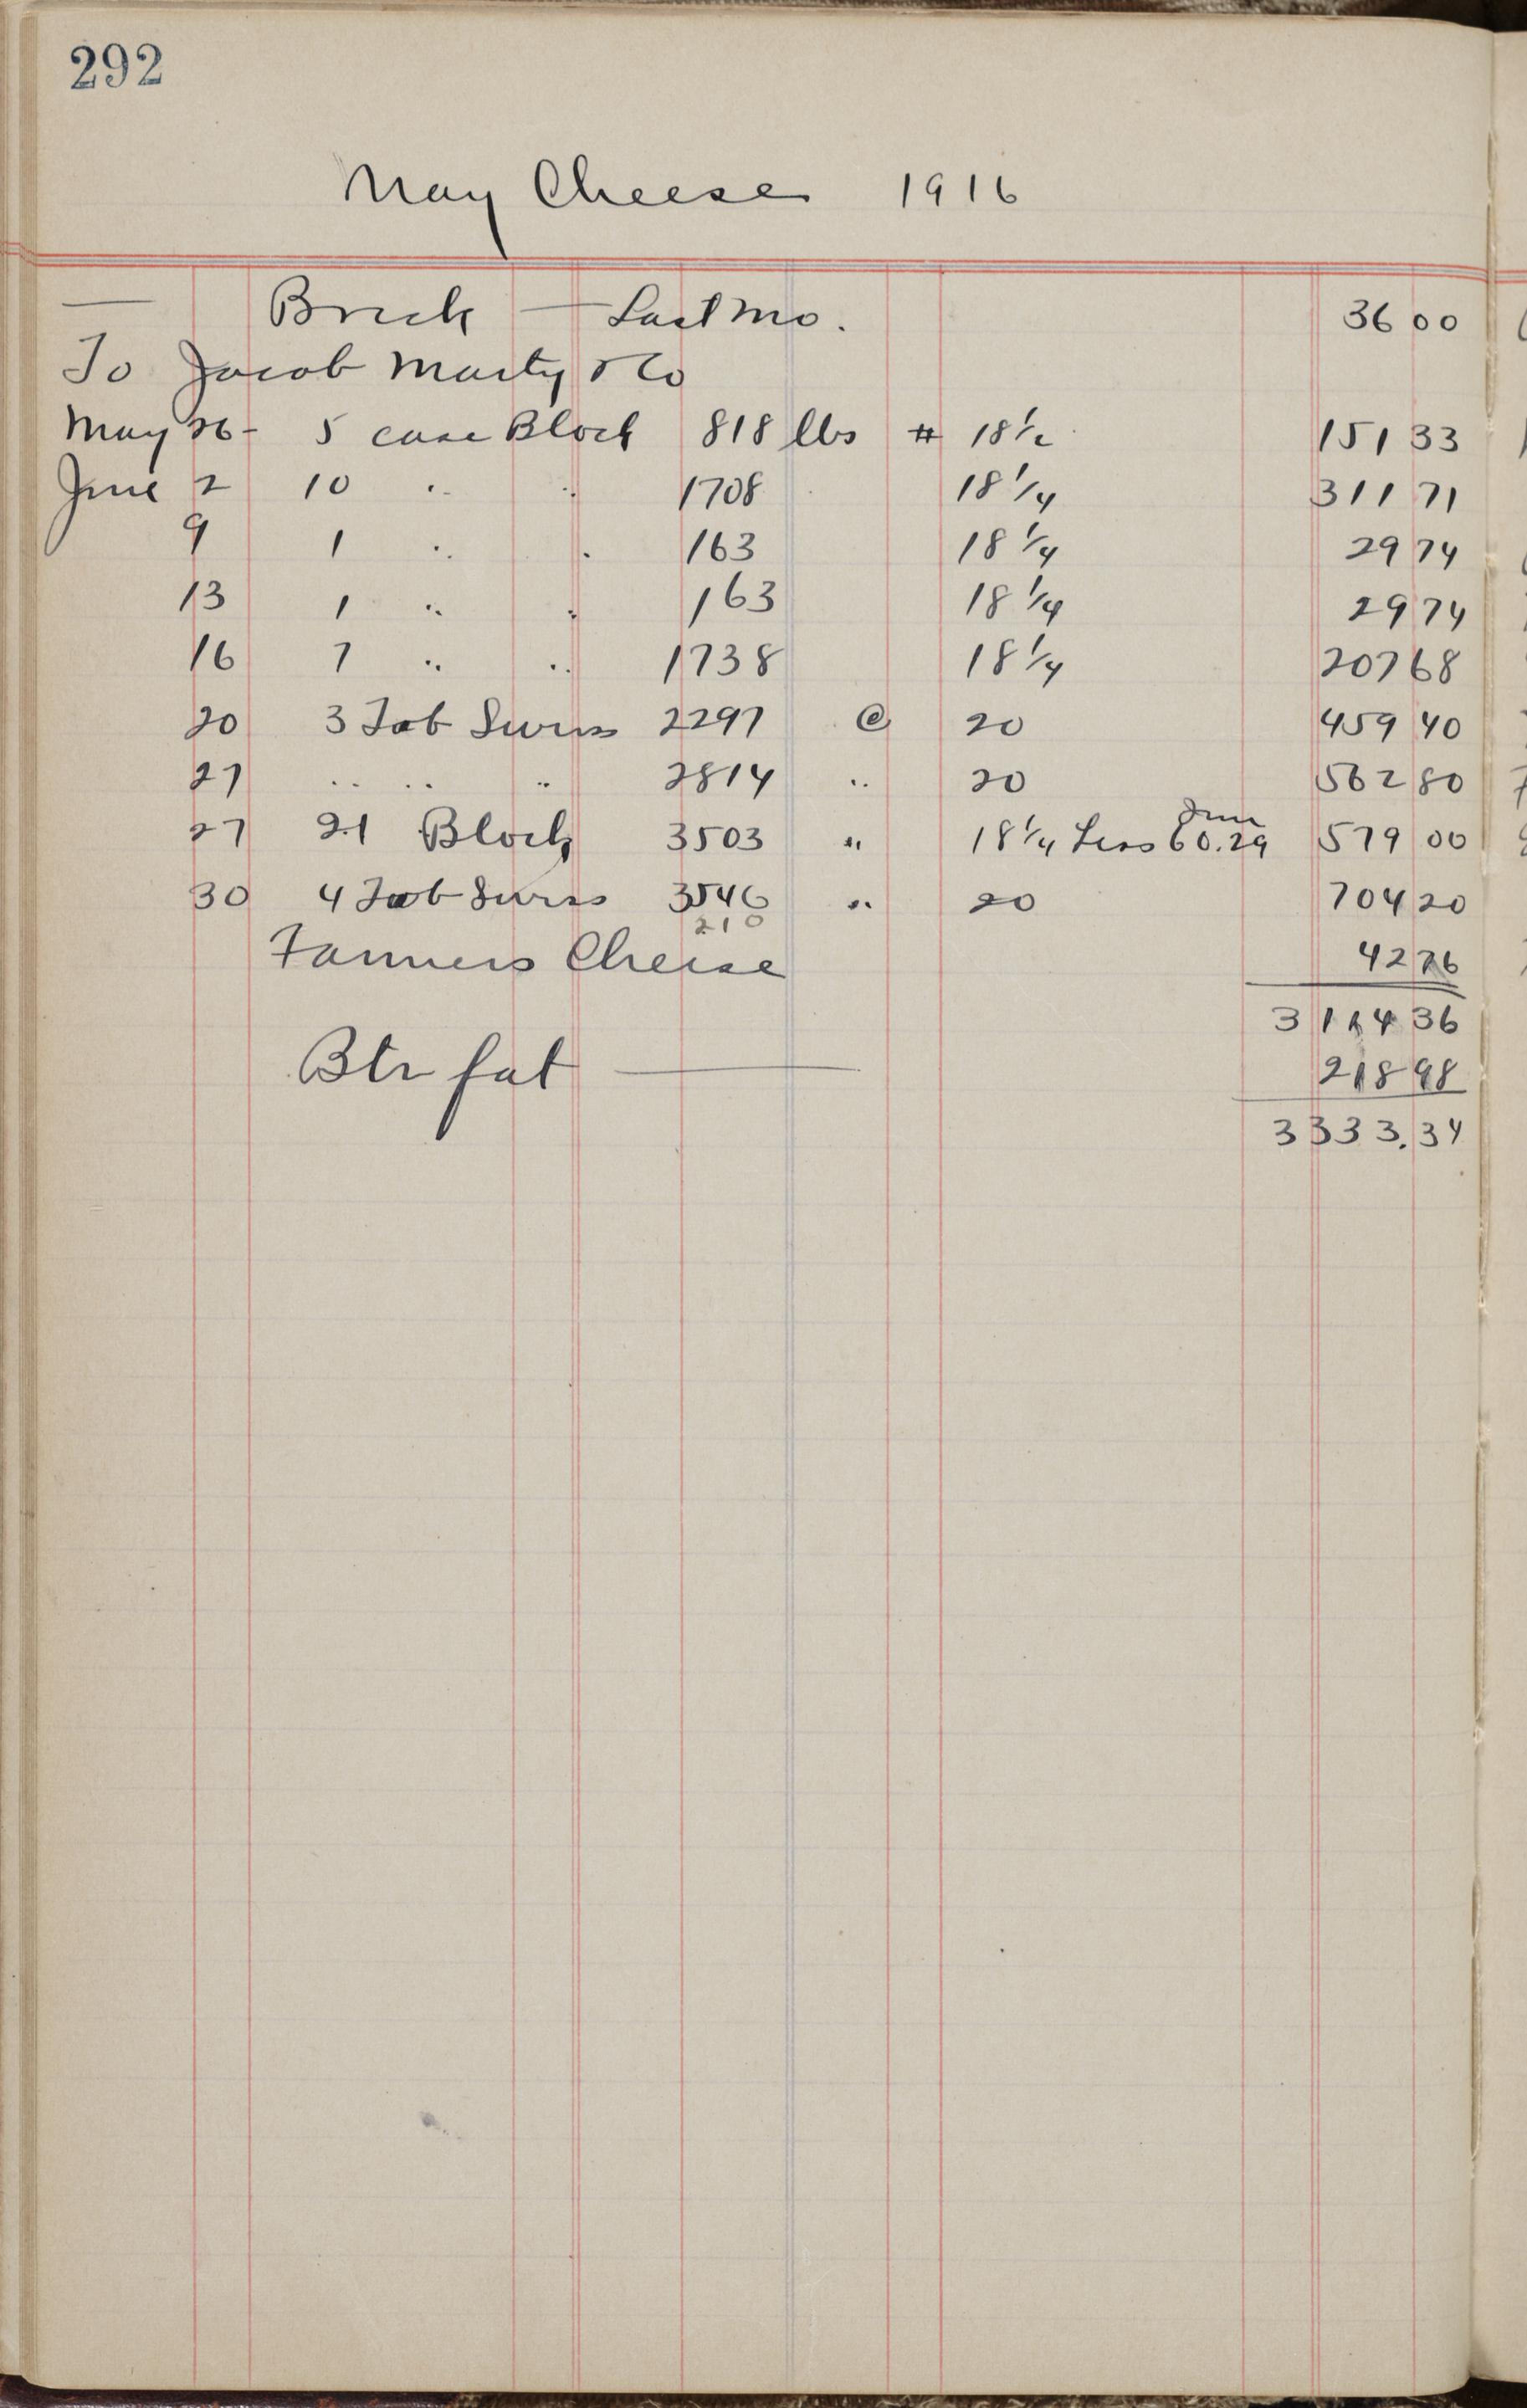 292
May Cheese 1916
— Brick — Last Mo. 36 00
To Jacob Marty & Co
May 26 - 5 case Block 818 lbs # 18 1/2 151 33
June 2 10 " " 1708 18 1/4 311 71
9 1 " " 163 18 1/4 29 74
13 1 " " 163 18 1/4 29 74
16 7 " " 1138 18 1/4 207 68
20 3 Tub Swiss 2297 @ 20 459 40
27 " " " 2814 " 20 562 80
June
27 21 Block 3503 " 18 1/4 Less 60.29 579 00
30 4 Tub Swiss 3546 " 20 704 20
210
Farmers Cheese 42 76
3 114 36
Btr fat — 218 98
3 333.34